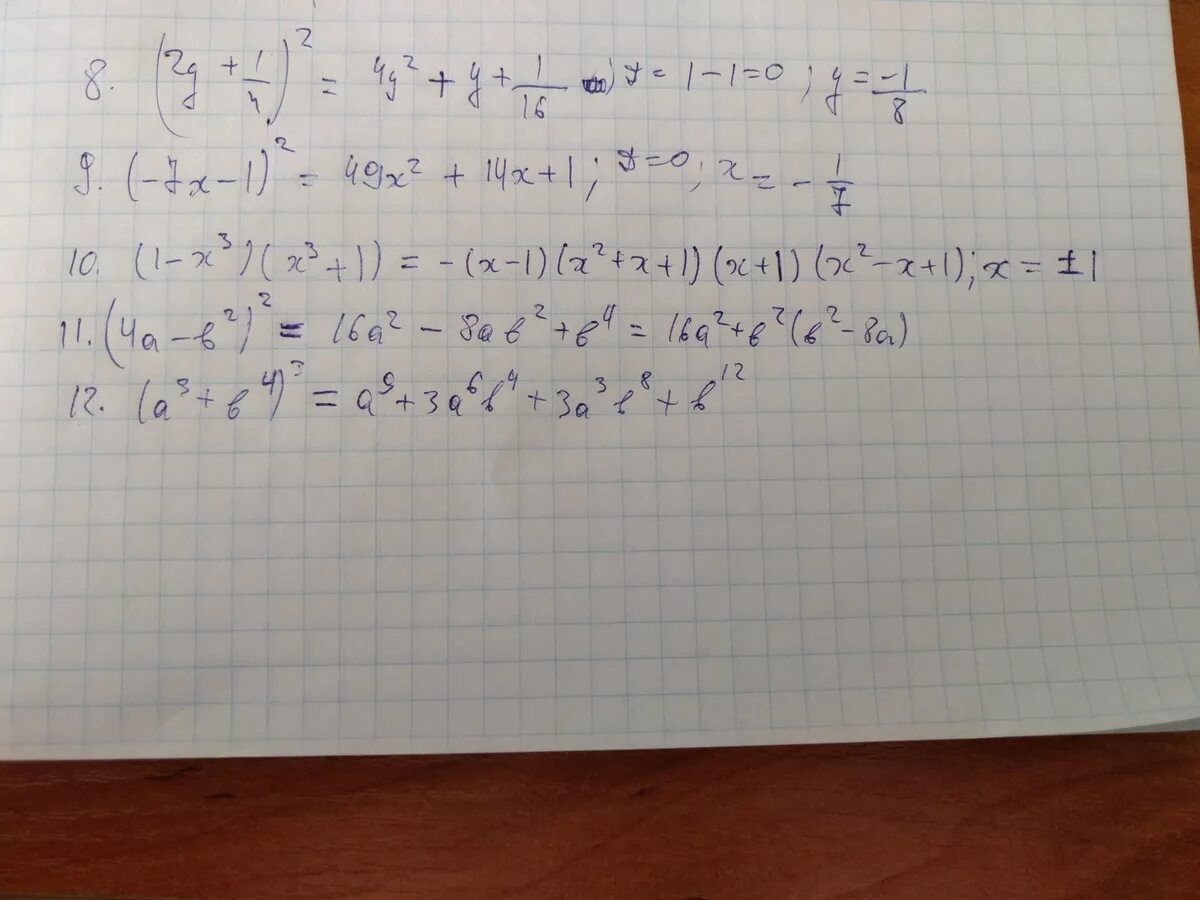 8. (2y + 1/4)² = 4y² + y + 1/16 ; D = 1 - 1 = 0 ; y = -1/8
9. (-7x - 1)² = 49x² + 14x + 1 ; D = 0 ; x = - 1/7
10. (1 - x³)(x³ + 1) = -(x - 1)(x² + x + 1)(x + 1)(x² - x + 1); x = ±1
11. (4a - в²)² = 16a² - 8aв² + в⁴ = 16a² + в²(в² - 8a)
12. (a³ + в⁴)³ = a⁹ + 3a⁶в⁴ + 3a³в⁸ + в¹²